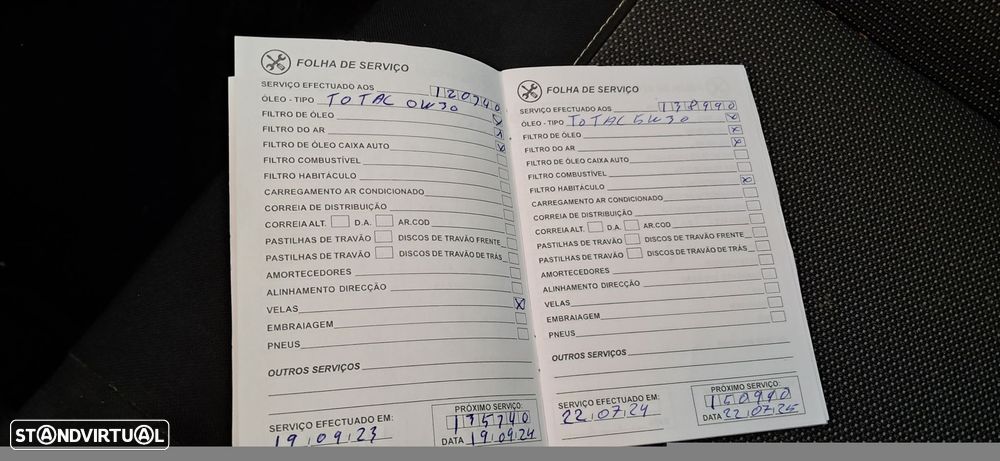 FOLHA DE SERVIÇO
SERVIÇO EFECTUADO AOS 120740
ÓLEO - TIPO TOTAL 0W30
FILTRO DE ÓLEO X
FILTRO DO AR X
FILTRO DE ÓLEO CAIXA AUTO X
FILTRO COMBUSTÍVEL
FILTRO HABITÁCULO
CARREGAMENTO AR CONDICIONADO
CORREIA DE DISTRIBUIÇÃO
CORREIA ALT. D.A. AR.COD
PASTILHAS DE TRAVÃO DISCOS DE TRAVÃO FRENTE
PASTILHAS DE TRAVÃO DISCOS DE TRAVÃO DE TRÁS
AMORTECEDORES
ALINHAMENTO DIRECÇÃO
VELAS X
EMBRAIAGEM
PNEUS
OUTROS SERVIÇOS
SERVIÇO EFECTUADO EM:
19,09,23
PRÓXIMO SERVIÇO:
135740
DATA 19,09,24
FOLHA DE SERVIÇO
SERVIÇO EFECTUADO AOS 138990
ÓLEO - TIPO TOTAL 5W30 X
FILTRO DE ÓLEO X
FILTRO DO AR X
FILTRO DE ÓLEO CAIXA AUTO
FILTRO COMBUSTÍVEL
FILTRO HABITÁCULO X
CARREGAMENTO AR CONDICIONADO
CORREIA DE DISTRIBUIÇÃO
CORREIA ALT. D.A. AR.COD
PASTILHAS DE TRAVÃO DISCOS DE TRAVÃO FRENTE
PASTILHAS DE TRAVÃO DISCOS DE TRAVÃO DE TRÁS
AMORTECEDORES
ALINHAMENTO DIRECÇÃO
VELAS
EMBRAIAGEM
PNEUS
OUTROS SERVIÇOS
SERVIÇO EFECTUADO EM:
22,07,24
PRÓXIMO SERVIÇO:
150990
DATA 22,07,25
STANDVIRTUAL